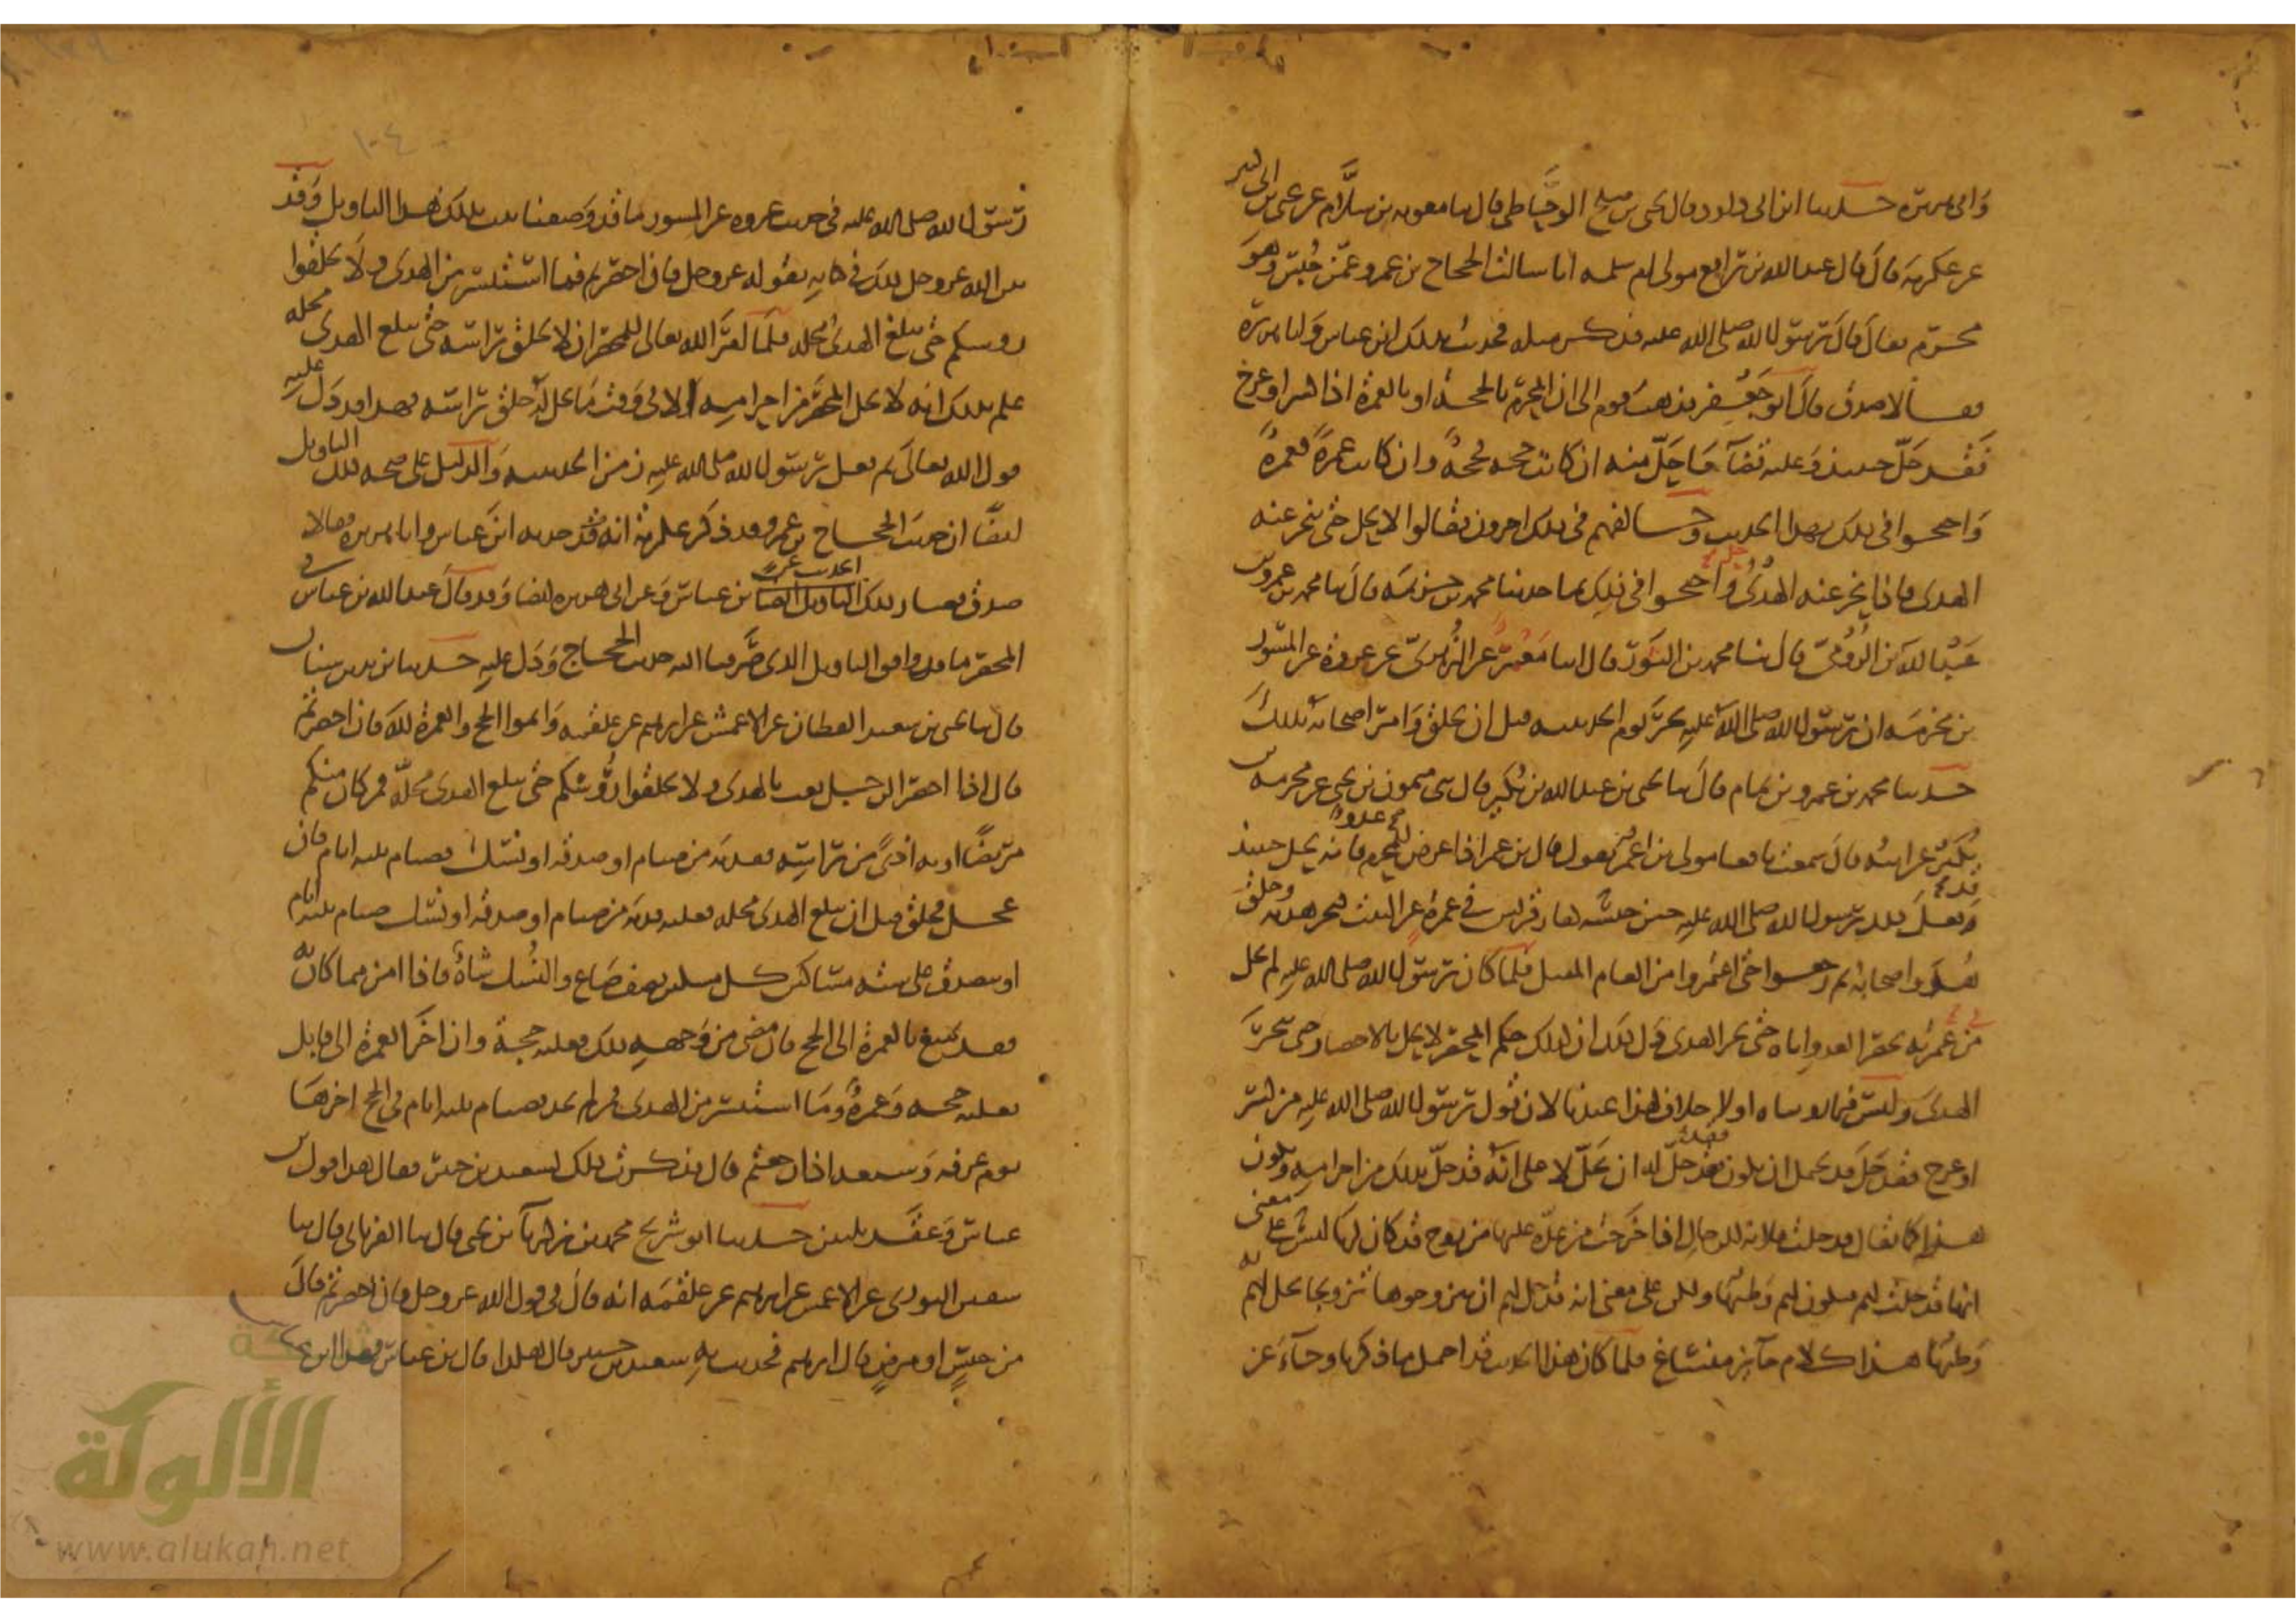 وابي هريرة حدثنا ابن ابي داود قال يحيى بن صلح الوحاظي قال ثنا معويه بن سلام عن يحيى بن ابي كثير
عن عكرمة قال قال عبد الله بن رافع مولى ام سلمه انا سالت الحجاج بن عمرو عمن حبس وهو
محرم فقال قال رسول الله صلى الله عليه فذكر مثله فحدثت بذلك ابن عباس وابا هريرة
فقالا صدق قال ابو جعفر فذهب قوم الى ان المحرم بالحجة او بالعمرة اذا كسر او عرج
فقد حل حينئذ وعليه قضآ ما حل منه ان كانت حجه فحجة وان كانت عمرة فعمرة
واحتجوا في ذلك بهذا الحديث وخالفهم في ذلك اخرون فقالوا لا يحل حتى ينحر عنه
الهدى فاذا نحر عنه الهدى حل واحتجوا في ذلك بما حدثنا محمد بن خزيمه قال ثنا محمد بن عمرو بن
عبد الله بن الرومي قال ثنا محمد بن الثور قال انبا معمر عن الزهري عن عروة عن المسور
بن مخرمه ان رسول الله صلى الله عليه نحر يوم الحديبيه قبل ان يحلق وامر اصحابه بذلك
حدثنا محمد بن عمرو بن تمام قال ثنا يحيى بن عبد الله بن بكير قال ثنى ميمون بن يحيى عن مخرمه بن
بكير عن ابيه قال سمعت نافعا مولى بن عمر يقول قال بن عمر اذا عرض للمحرم عدو فانه يحل حينئذ
قد فعل ذلك رسول الله صلى الله عليه حين حبسته كفار قريش في عمرة عن البيت فنحر هديه وحلق
وحل واصحابه ثم رجعوا حتى اعتمروا من العام المقبل فلما كان رسول الله صلى الله عليه لم يحل
في عمرته بحصر العدو اياه حتى نحر الهدى دل ذلك ان كذلك حكم المحصر لا يحل بالاحصار حتى ينحر
الهدى وليس فيما رويناه اولا خلاف لهذا عندنا لان قول رسول الله صلى الله عليه من كسر
او عرج فقد حل قد يحتمل ان يكون فقد حل له ان يحل لا على انه قد حل بذلك من احرامه ويكون
هذا كما يقال قد حلت فلانه للرجال اذا خرجت من عدة عليها من زوج قد كان لها ليس على معنى
انها قد حلت لهم فيكون لهم وطئها ولكن على معنى انه قد حل لهم ان يتزوجوها تزويجا يحل لهم به
وطئها هذا كلام جآئز منساغ فلما كان هذا الحديث قد احتمل ما ذكرنا وجآء عن
١٠٤
رسول الله صلى الله عليه في حديث عروه عن المسور ما قد وصفنا ثبت بذلك هذا التاويل وقد
بين الله عز وجل ذلك في كتابه بقوله عز وجل فان احصرتم فما استيسر من الهدى ولا تحلقوا
روسكم حتى يبلغ الهدى محله فلما امر الله تعالى المحصر ان لا يحلق راسه حتى يبلغ الهدى محله
علم بذلك انه لا يحل المحصر من احرامه الا في وقت ما يحل له حلق راسه فهذا قد دل عليه
قول الله تعالى ثم فعل رسول الله صلى الله عليه زمن الحديبيه والدليل على صحه ذلك التاويل
ايضا ان حديث الحجاج بن عمرو قد ذكر عكرمة انه قد حدثه ابن عباس وابا هريره فقالا
صدق فصار ذلك الحديث عن بن عباس وعن ابي هريره ايضا وقد قال عبد الله بن عباس في
المحصر ما قد وافق التاويل الذي صرفنا اليه حديث الحجاج ودل عليه حدثنا يزيد بن سنان
قال ثنا يحيى بن سعيد القطان عن الاعمش عن ابراهيم عن علقمه واتموا الحج والعمرة لله فان احصرتم
قال اذا احصر الرجل بعث بالهدى ولا تحلقوا رؤسكم حتى يبلغ الهدى محله فمن كان منكم
مريضا او به اذى من راسه ففدية من صيام او صدقة او نسك فصيام ثلثه ايام فان
عجل فحلق قبل ان يبلغ الهدى محله فعليه فدية من صيام او صدقة او نسك صيام ثلثه ايام
او يتصدق على ستة مساكين كل مسكين نصف صاع والنسك شاة فاذا امن مما كان به
فمن تمتع بالعمرة الى الحج فان مضى من وجهه ذلك فعليه حجة وان اخر العمرة الى قابل
فعليه حجه وعمرة وما استيسر من الهدى فمن لم يجد فصيام ثلثه ايام في الحج اخرها
يوم عرفه وسبعة اذا رجعتم قال فذكرت ذلك لسعيد بن جبير فقال هذا قول بن
عباس وعقد ثلثين حدثنا ابو شريح محمد بن زكريآ بن يحيى قال ثنا الفريابي قال ثنا
سفين الثوري عن الاعمش عن ابراهيم عن علقمه انه قال في قول الله عز وجل فان احصرتم قال
من حبس او مرض قال ابراهيم فحدثت به سعيد بن جبير فقال هكذا قال بن عباس
الألوكة
www.alukah.net